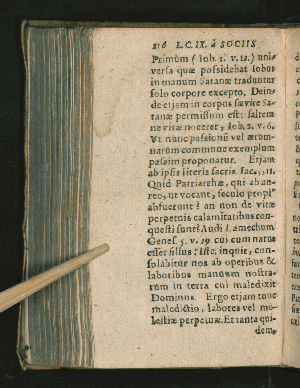 216 L.C.IX. à SOCIIS
Primùm ( Iob. 1. v. 12.) uni-
versa quæ possidebat Iobus
in manum Satanæ traduntur
solo corpore excepto. Dein-
de etjam in corpus sævire Sa-
tanæ permissum est: saltem
ne vitæ noceret, Iob. 2. v. 6.
Ut nunc passionũ vel ærum-
narum commune exemplum
passim proponatur. Etjam
ab ipsis literis sacris. Iac. 5, 11.
Quid Patriarchæ, qui ab au-
reo, ut vocant, seculo propiùs
abfuerunt? an non de vitæ
perpetuis calamitatibus con-
questi sunt? Audi Lamechum
Genes. 5. v. 29. cui cum natus
esset filius: Iste, inquit, con-
solabitur nos ab operibus &
laboribus manuum nostra-
rum in terra cui maledixit
Dominus. Ergo etjam tunc
maledictio, labores vel mo-
lestiæ perpetuæ. Et tanta qui-
dem,